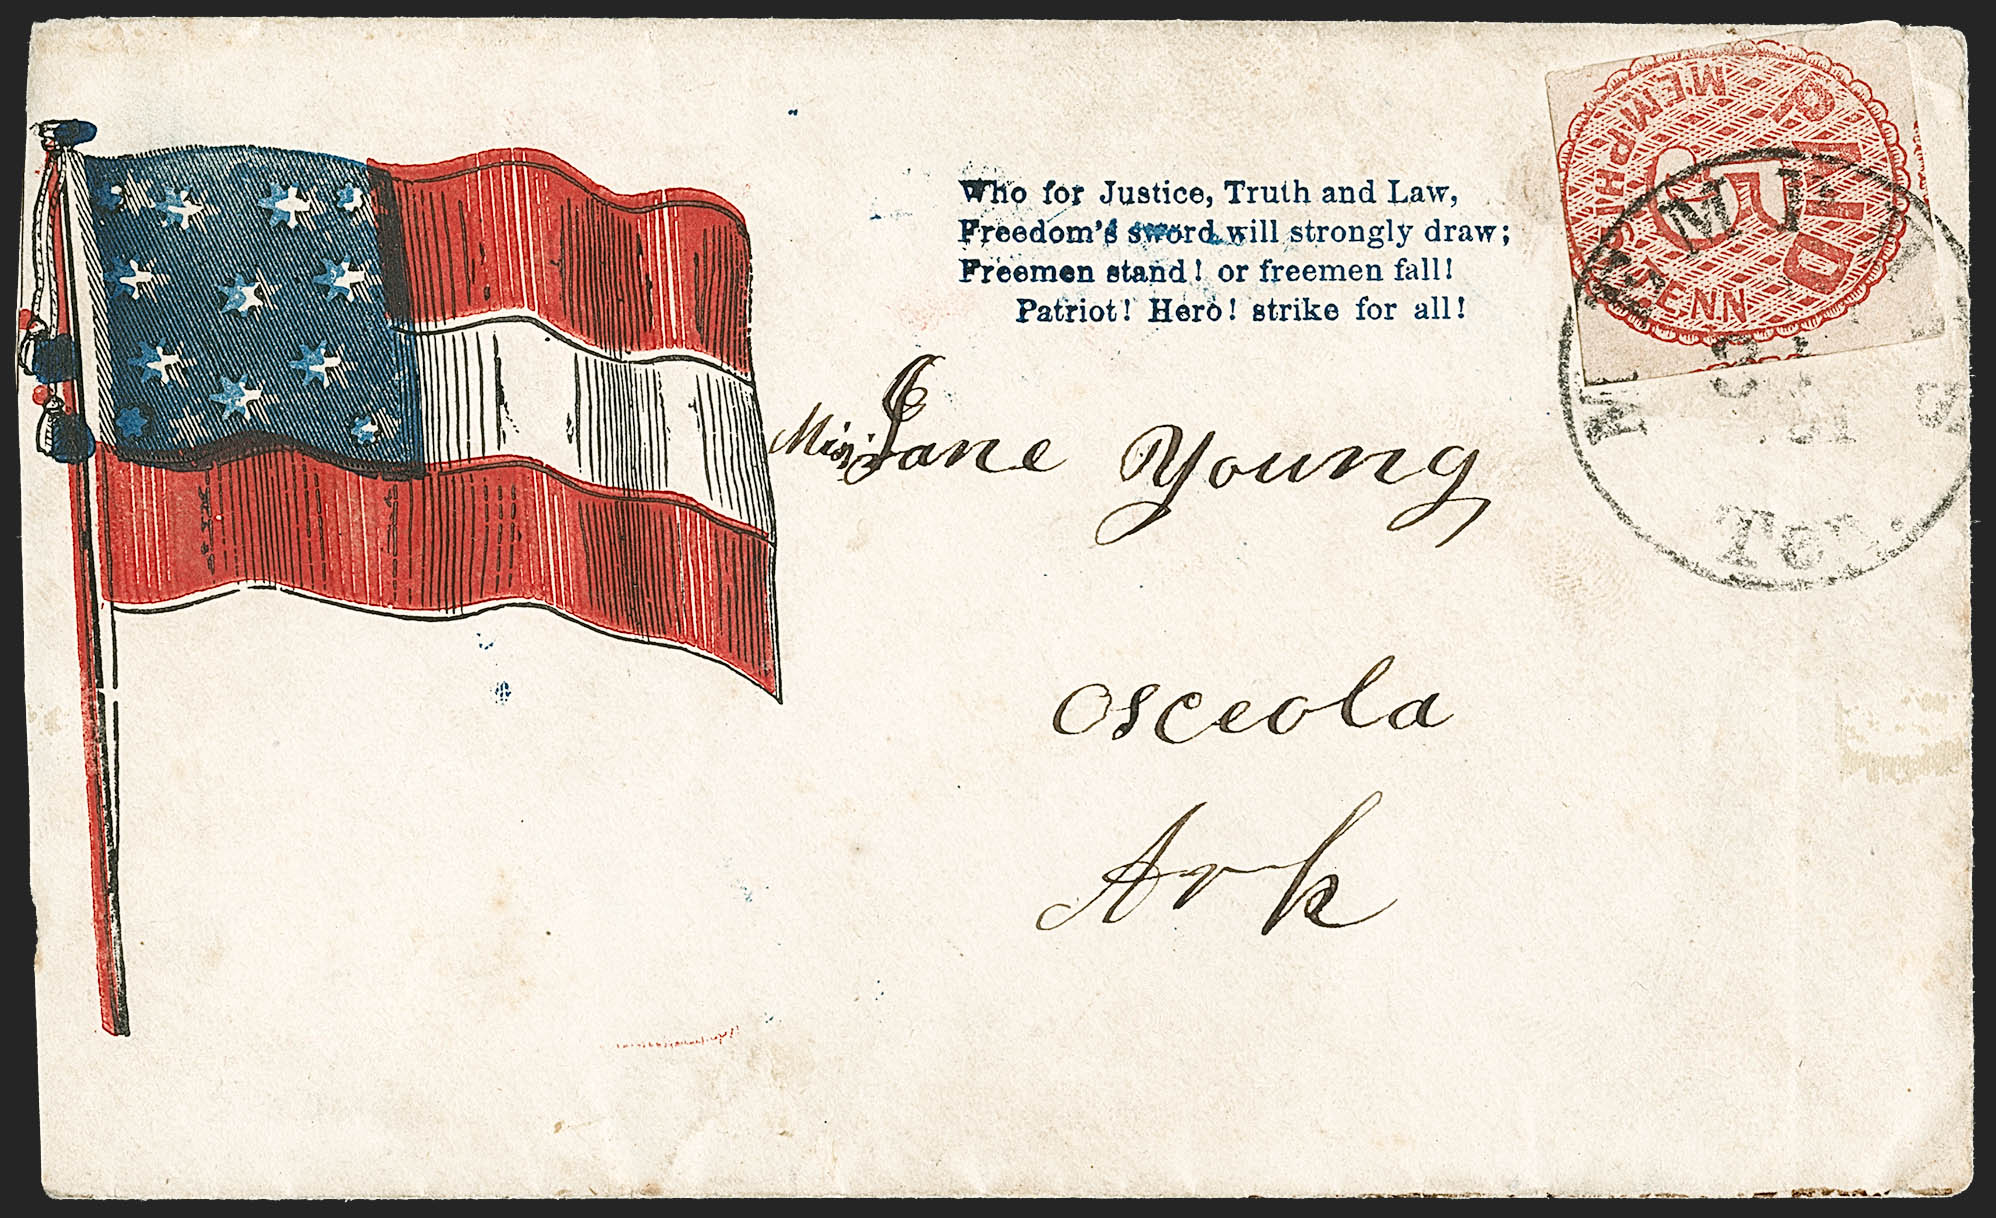 Who for Justice, Truth and Law,
Freedom's sword will strongly draw;
Freemen stand! or freemen fall!
Patriot! Hero! strike for all!
PAID
5
MEMPHIS, TENN
MEMPHIS
TEN.
Miss Jane Young
Osceola
Ark